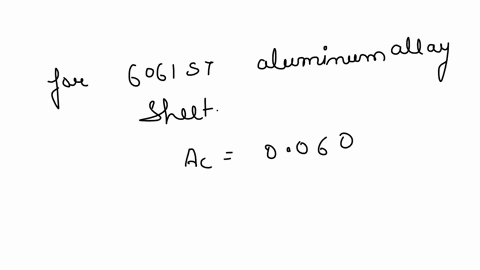 for 6061ST aluminum allay
sheet.
Ac = 0.060